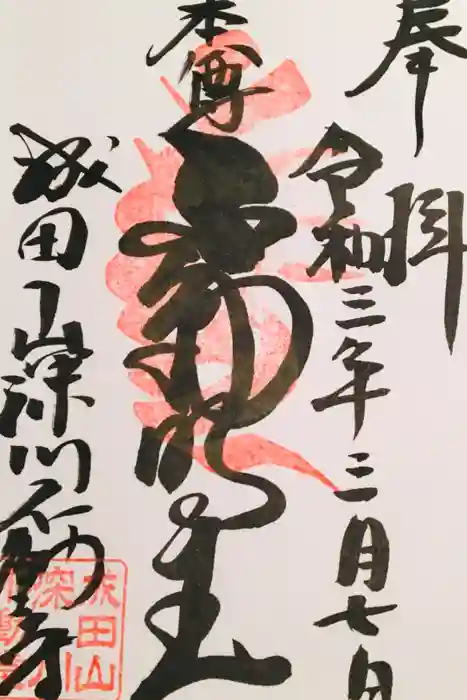 奉拝
令和三年三月七日
本尊
不動明王
成田山深川不動尊
成田山
深川